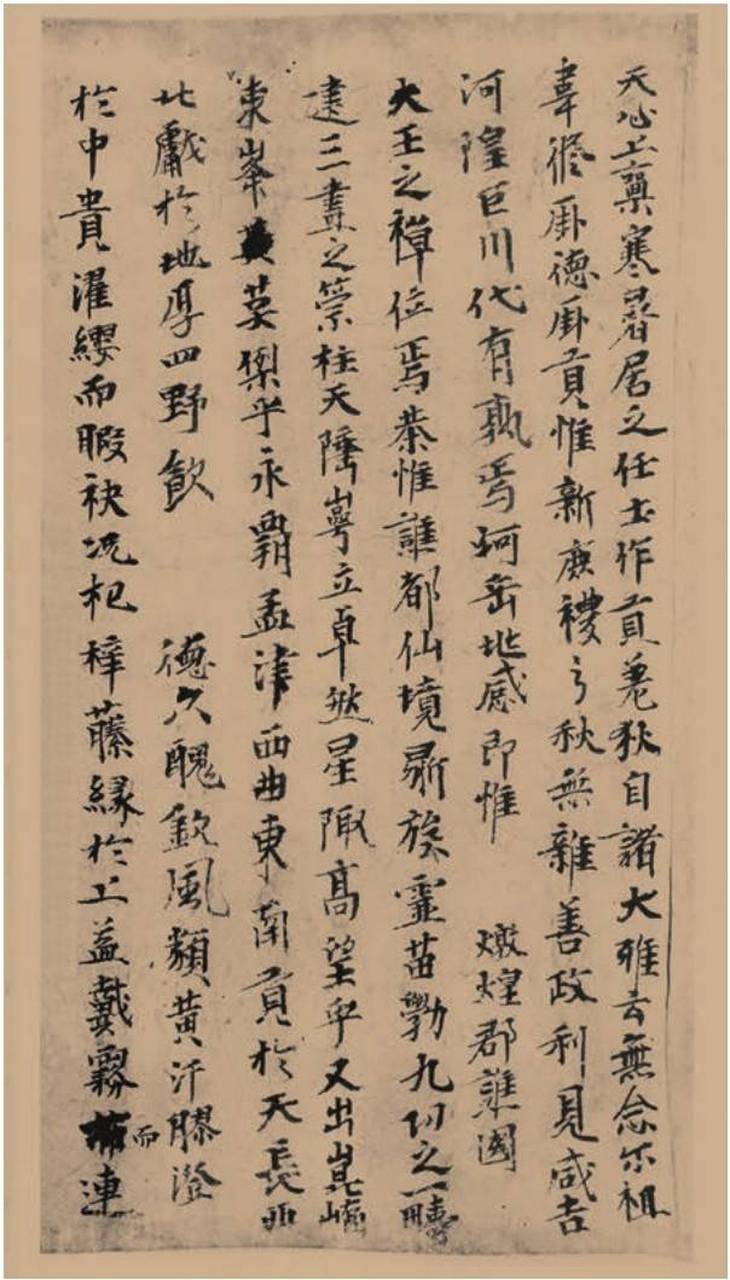 天心上稟寒暑居之任土作貢羌狄自諸大雅云無念尔祖
聿修厥德厥貢惟新庶禮之秋無雜善政利見咸吉
河隍巨川代有孰焉河岳地感即惟 燉煌郡譙國
大王之禪位焉恭惟譙都仙境鼎族靈苗勤九仞之一疇
遠三畫之榮柱天降嶺立卓然星陬高望乎又出崑崙
東峯莫梨乎永霸孟津西曲東南貢於天長西
北獻於地厚四野飲 德久醜欽風類黃汗膠澄
於中貴濯纓而暇袂況杞梓藤緣於上益戴霧而連